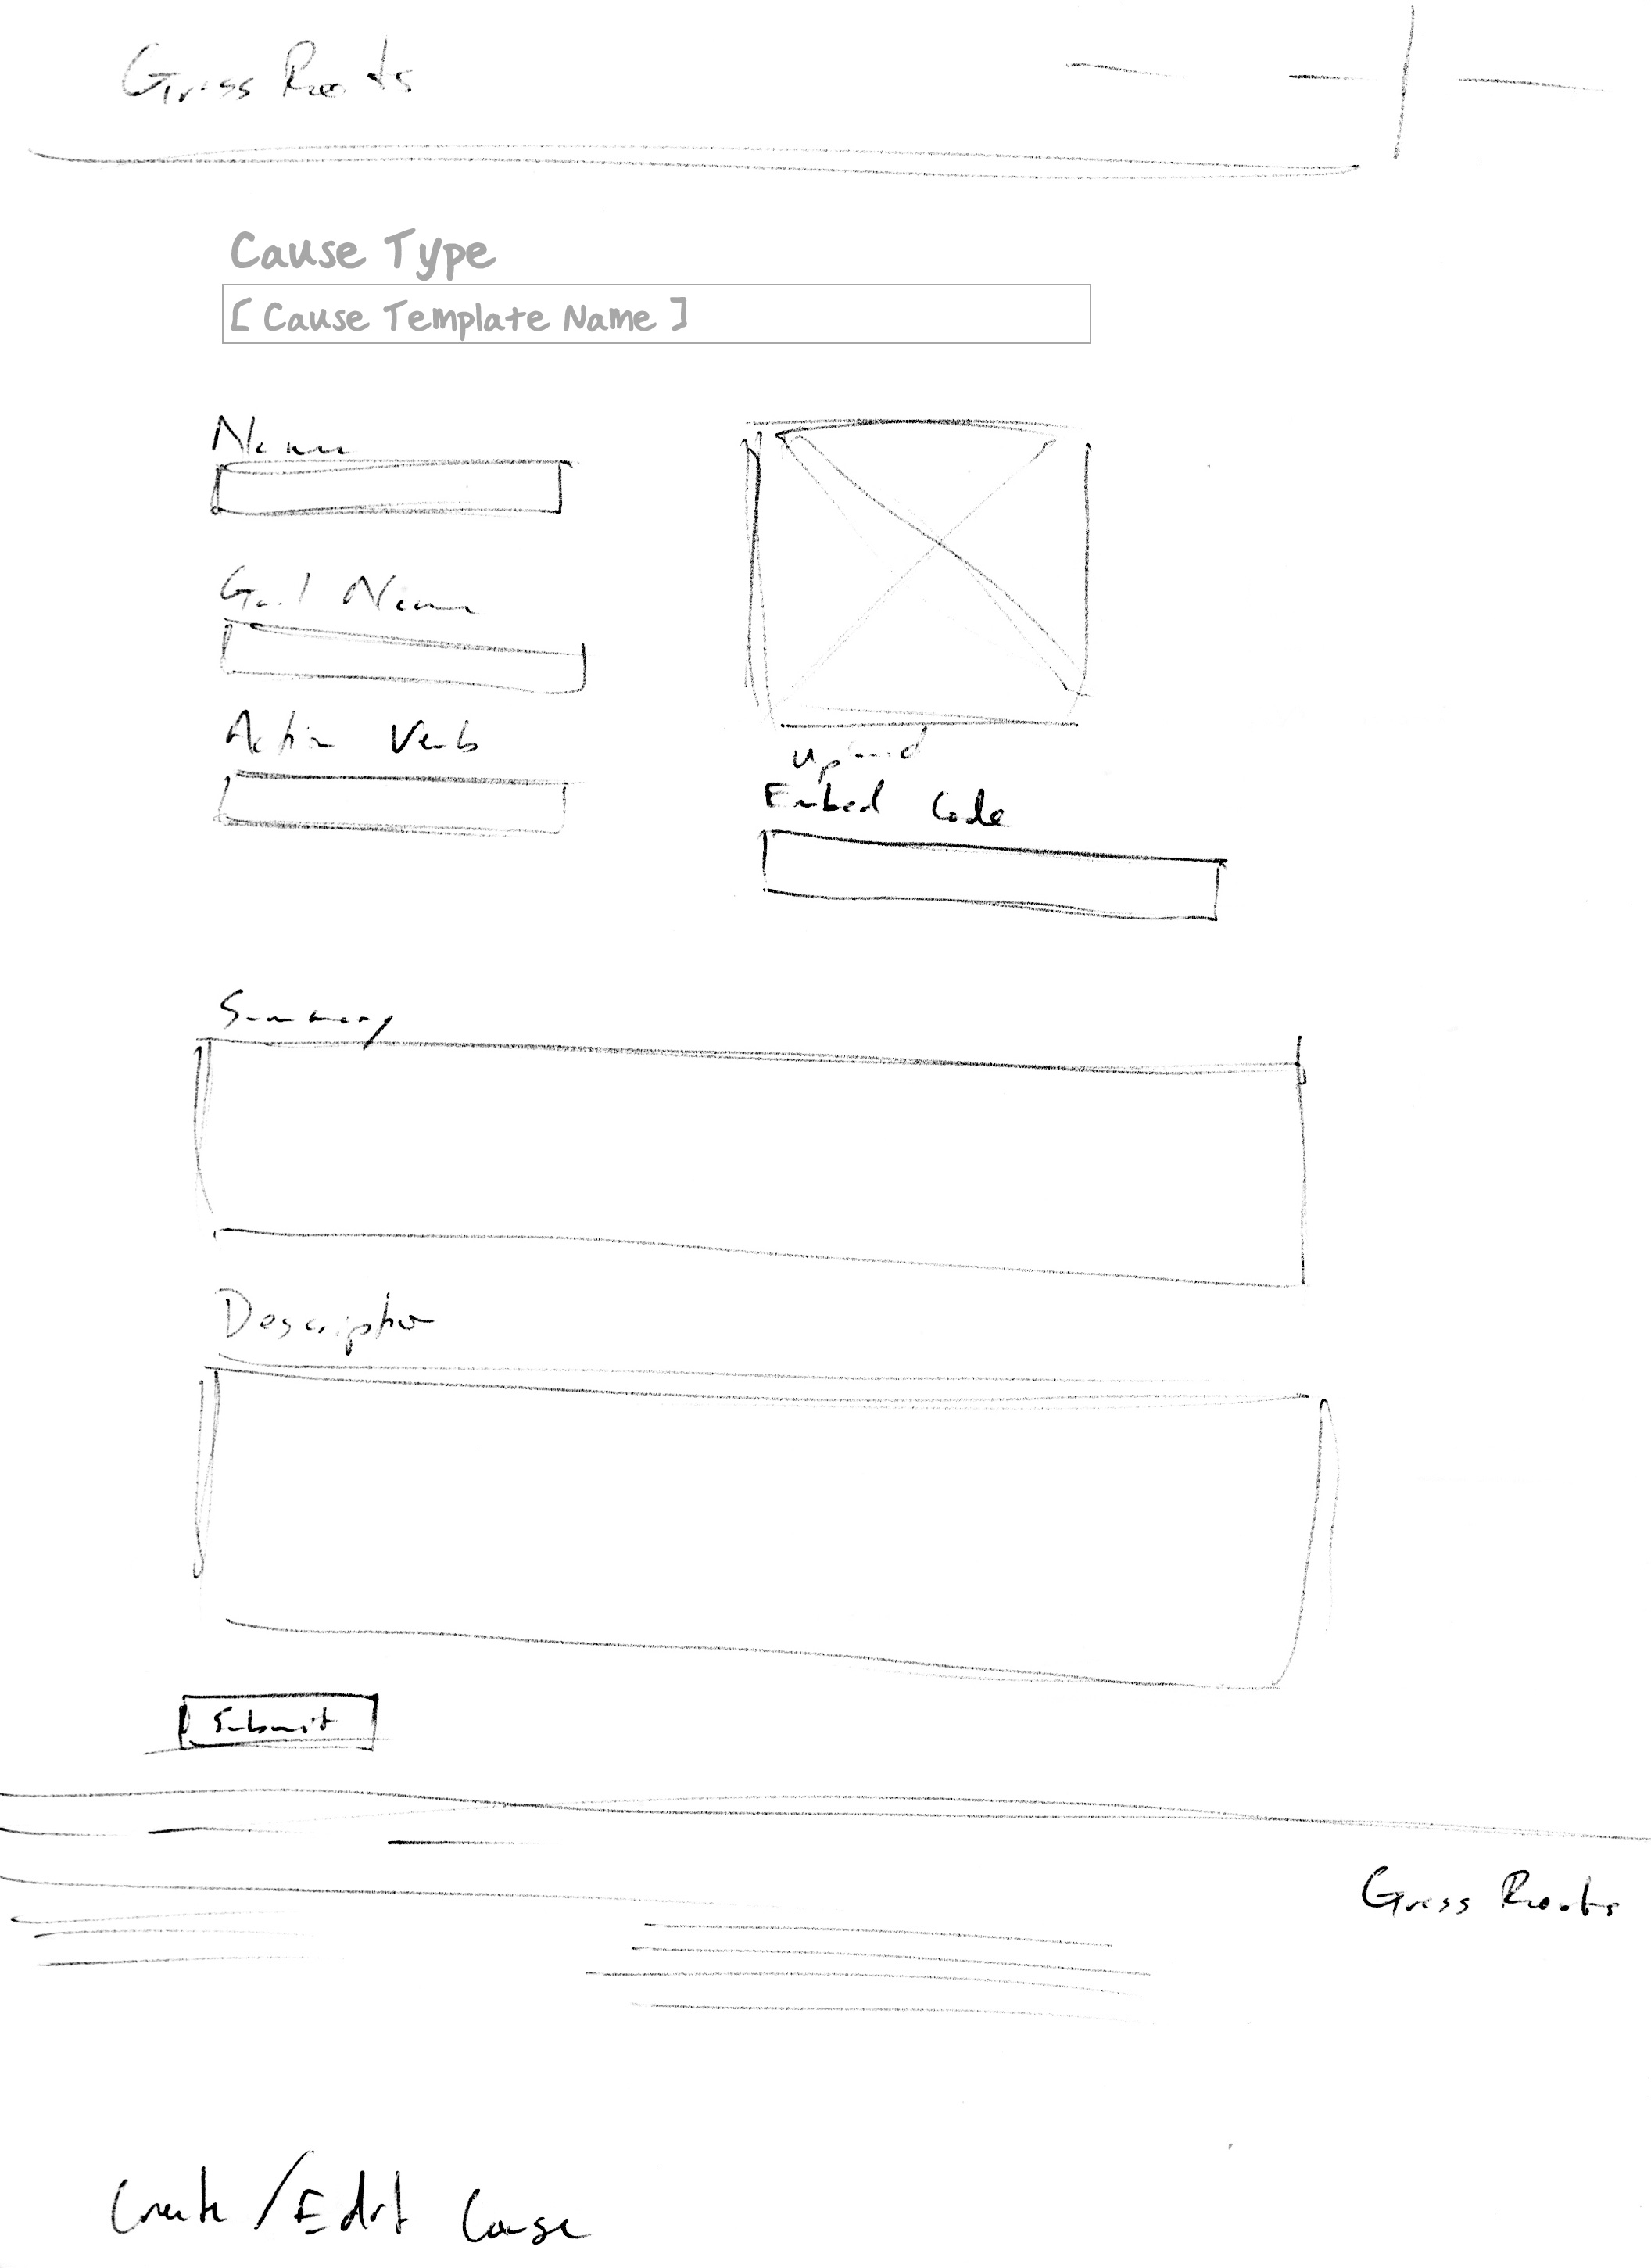 Grass Roots
Cause Type
[ Cause Template Name ]
Name
Goal Name
Action Verb
Upload
Embed Code
Summary
Description
Submit
Grass Roots
Create/Edit Cause